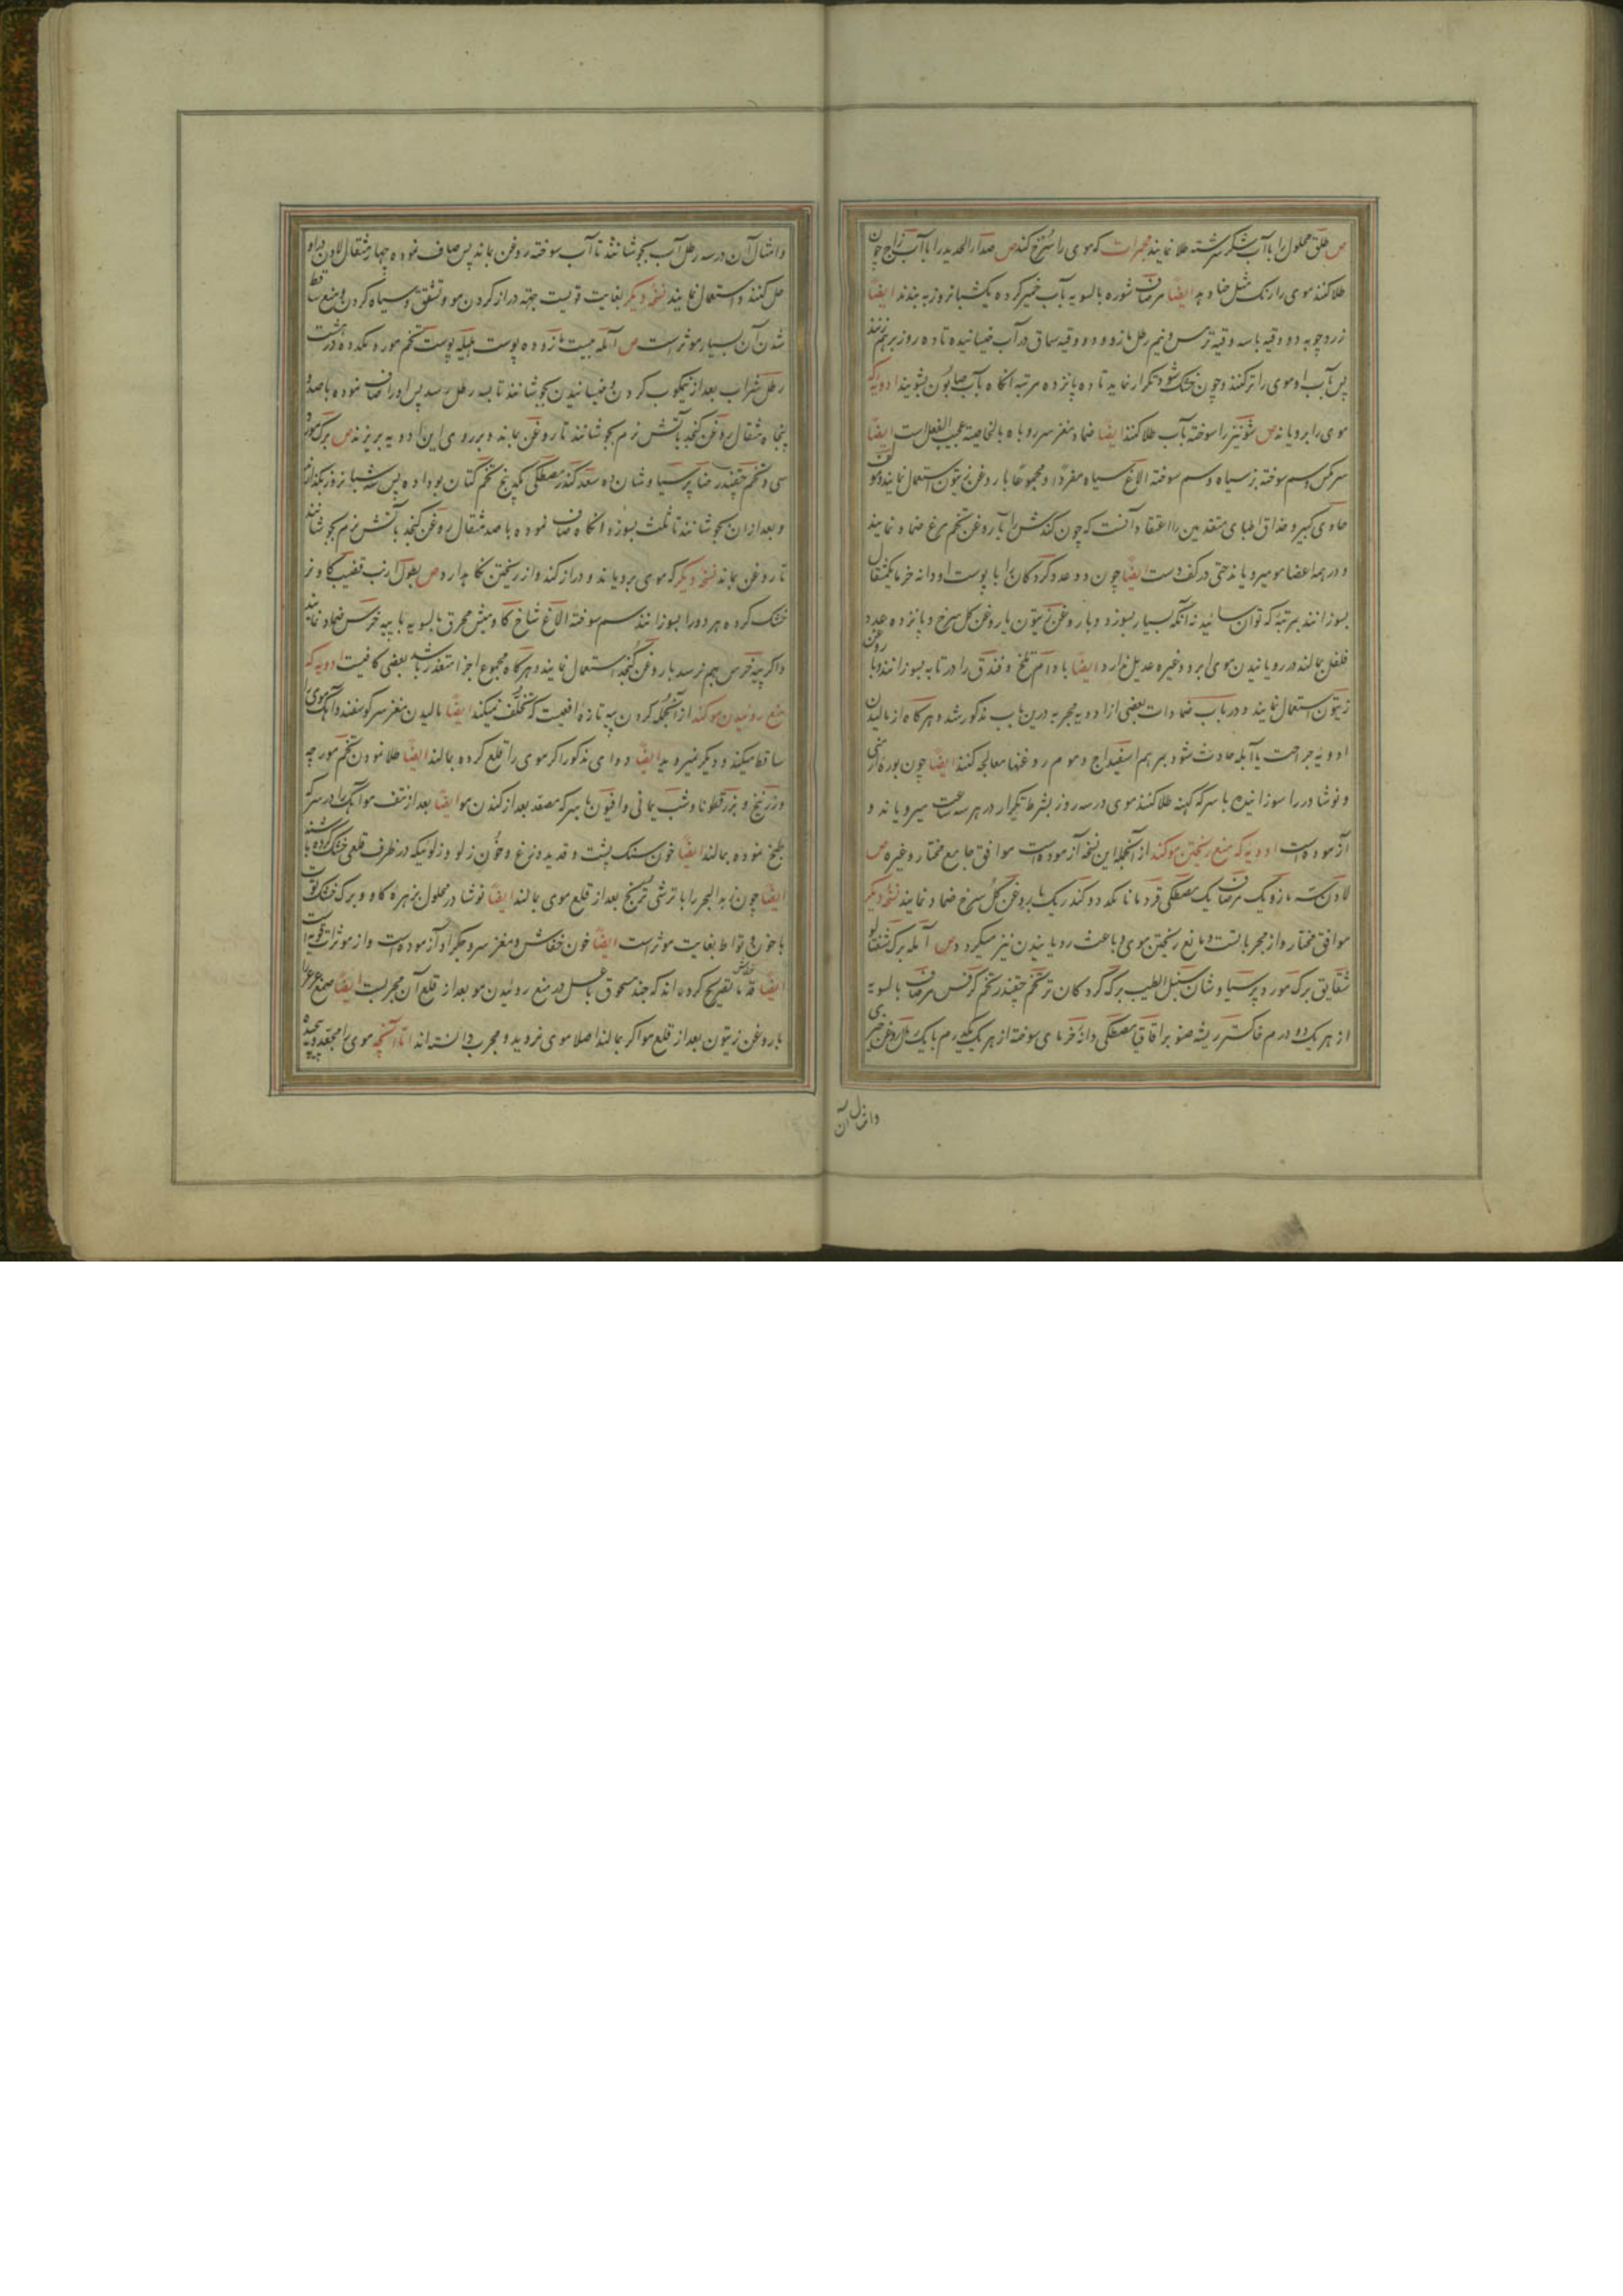 ص طلق محلول را باآب شکر سرشته طلا نمایند محمرات که موی را سرخ کند ص صداء الحدید را باآب زاج چون
طلا کنند موی را رنک مثل حنا دهد ایضا مر صاف شوره بالسویه بآب خمیر کرده یکشبانروز به بندند ایضا
زردچوبه دو وقیه باسه وقیه ترمس و نیم رطل مازو و دو وقیه سماق در آب خیسانیده تا ده روز برهم زنند
پس بآب او موی را تر کنند و چون خشک شود تکرار نماید تا ده پانزده مرتبه انکاه بآب صابون بشویند ادویه که
موی را برویاند ص شونیز را سوخته بآب طلا کنند ایضا ضماد مغز سر روباه بالخاصیه عجیب الفعل است ایضا
سرکین وسم سوخته بز سیاه وسم سوخته الاغ سیاه مفردا و مجموعا با روغن زیتون استعمال نمایند
حاوی کبیر و حذاق اطبای متقدمین را اعتقاد آنست که چون کندش را با روغن تخم مرغ ضماد نمایند
و در همه اعضا مو میرویاند حتی در کف دست ایضا چون دو عدد کردکان را با پوست او دانه خرما یکمثقال
بسوزانند بمرتبه که توان سائید نه آنکه بسیار بسوزد و با روغن زیتون یا روغن کل سرخ و پانزده عدد
فلفل بمالند در رویانیدن موی ابرو و غیره عدیل ندارد ایضا بادام تلخ و فندق را در تابه بسوزانند و با روغن
زیتون استعمال نمایند و در باب ضمادات بعضی از ادویه مجربه درین باب مذکور شد و هرکاه از مالیدن
ادویه جراحت یا آبله حادث شود بمرهم اسفیداج و موم روغنها معالجه کنند ایضا چون بوره ارمنی
و نوشادر را سوزانیده با سرکه کهنه طلا کنند موی در سه روز بشرط تکرار در هر سه ساعت میرویاند و
آزموده است ادویه که منع ریختن مو کند از آنجمله این نسخه آزموده است موافق جامع مختار و غیره ص
لادن سه مازو یک مر صاف یک مصطکی قردمانا یکد دو کندر یک با روغن کل سرخ ضماد نمایند نسخه دیکر
موافق مختار و از مجربات است و مانع ریختن موی و باعث رویانیدن نیز میکردد ص آمله برک شفتالو
شقایق برک مورد پرسیاوشان سنبل الطیب برک کردکان تر تخم چقندر تخم کرفس مر صاف بالسویه
از هر یک ده درم خاکستر ریشه صنوبر اقاقیا مصطکی دانه خرمای سوخته از هر یک یکدرم با یک رطل روغن خیری
وامثال آن
وامثال آن در سه رطل آب بجوشانند تا آب سوخته روغن بماند پس صاف نموده چهار مثقال لادن در او
حل کنند و استعمال نمایند نسخه دیکر بغایت قویست جهته دراز کردن مو و تشقق و سیاه کردن و منع ساقط
شدن آن بسیار موثر است ص آمله بیست مازو ده پوست هلیله پوست تخم مورد یکد ده در هشت
رطل شراب بعد از نیمکوب کردن و خیسانیدن بجوشانند تا بسه رطل رسد پس او را صاف نموده با صد و
پنجاه مثقال روغن کنجد بآتش نرم بجوشانند تا روغن بماند و بر روی این ادویه بریزند ص برک مورد
سی و تخم چقندر حنا پرسیاوشان ده سعد کندر مصطکی یکد پنج تخم کتان بو داده بیس سه شبانروز بکذارند
و بعد از آن بجوشانند تا ثلث بسوزد انکاه صاف نموده با صد مثقال روغن کنجد بآتش نرم بجوشانند
تا روغن بماند نسخه دیکر که موی برویاند و دراز کند و از ریختن نکاه بدارد ص بطون ارنب قضیب کاو نر
خشک کرده هر دو را بسوزانند سم سوخته الاغ شاخ کاومیش محرق بالسویه با پیه خرس ضماد نمایند
و اکر پیه خرس بهم نرسد با روغن کنجد استعمال نمایند و هرکاه مجموع اجزا متعذر باشد بعضی کافیست ادویه که
منع روئیدن مو کند از آنجمله کردن پیه تازه افعیست که تخلف نمیکند ایضا مالیدن مغز سر کوسفند و آهک موی را
ساقط میکند و دیکر نمیروید ایضا دوای مذکور اکر موی را قلع کرده بمالند ایضا طلا نمودن تخم مورچه
و زرنیخ و بزرقطونا و شب یمانی و افیون با سرکه مصعد بعد از کندن مو ایضا بعد از نتف مو آهک را در سرکه
طبخ نموده بمالند ایضا خون سنک پشت و قدید وزغ و خون زلو و زلوئیکه در ظرف قلعی خشک کرده باشند
ایضا چون زبد البحر را با ترشی ترنج بعد از قلع موی بمالند ایضا نوشادر محلول بزهره کاو و برک خشک توت
با خون وطواط بغایت موثر است ایضا خون خفاش و مغز سر و جکر او آزموده است و از موثرات قویه است
ایضا قدما تصریح کرده اند که جند مسحوق با عسل در منع روئیدن مو بعد از قلع آن مجربست ایضا صمغ عرعر را
با روغن زیتون بعد از قلع مو اکر بمالند اصلا موی نروید و مجرب دانسته اند اما آنچه موی را مجعد و پیچیده